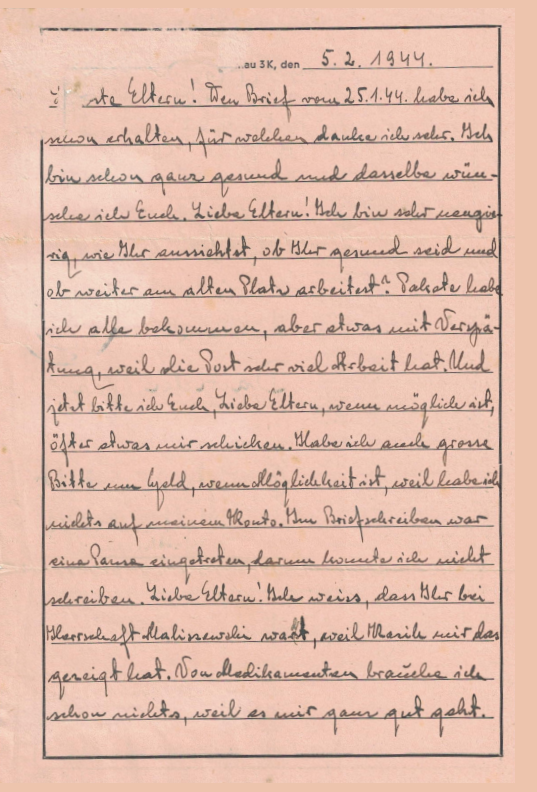 au 3K, den 5. 2. 1944.
ste Eltern! Den Brief vom 25.1.44. habe ich
schon erhalten, für welchen danke ich sehr. Ich
bin schon ganz gesund und dasselbe wün-
sche ich Euch. Liebe Eltern! Ich bin sehr neugie-
rig, wie Ihr aussiehtst, ob Ihr gesund seid und
ob weiter am alten Platz arbeitest? Pakete habe
ich alle bekommen, aber etwas mit Verspä-
tung, weil die Post sehr viel Arbeit hat. Und
jetzt bitte ich Euch, Liebe Eltern, wenn möglich ist,
öfter etwas mir schicken. Habe ich auch grosse
Bitte um Geld, wenn Möglichkeit ist, weil habe ich
nichts auf meinem Konto. Im Briefschreiben war
eine Pause eingetreten, darum konnte ich nicht
schreiben. Liebe Eltern! Ich weiss, dass Ihr bei
Herrschaft Malissewski wart, weil mir das
gezeigt hat. Von Medikamenten brauche ich
schon nichts, weil es mir ganz gut geht.